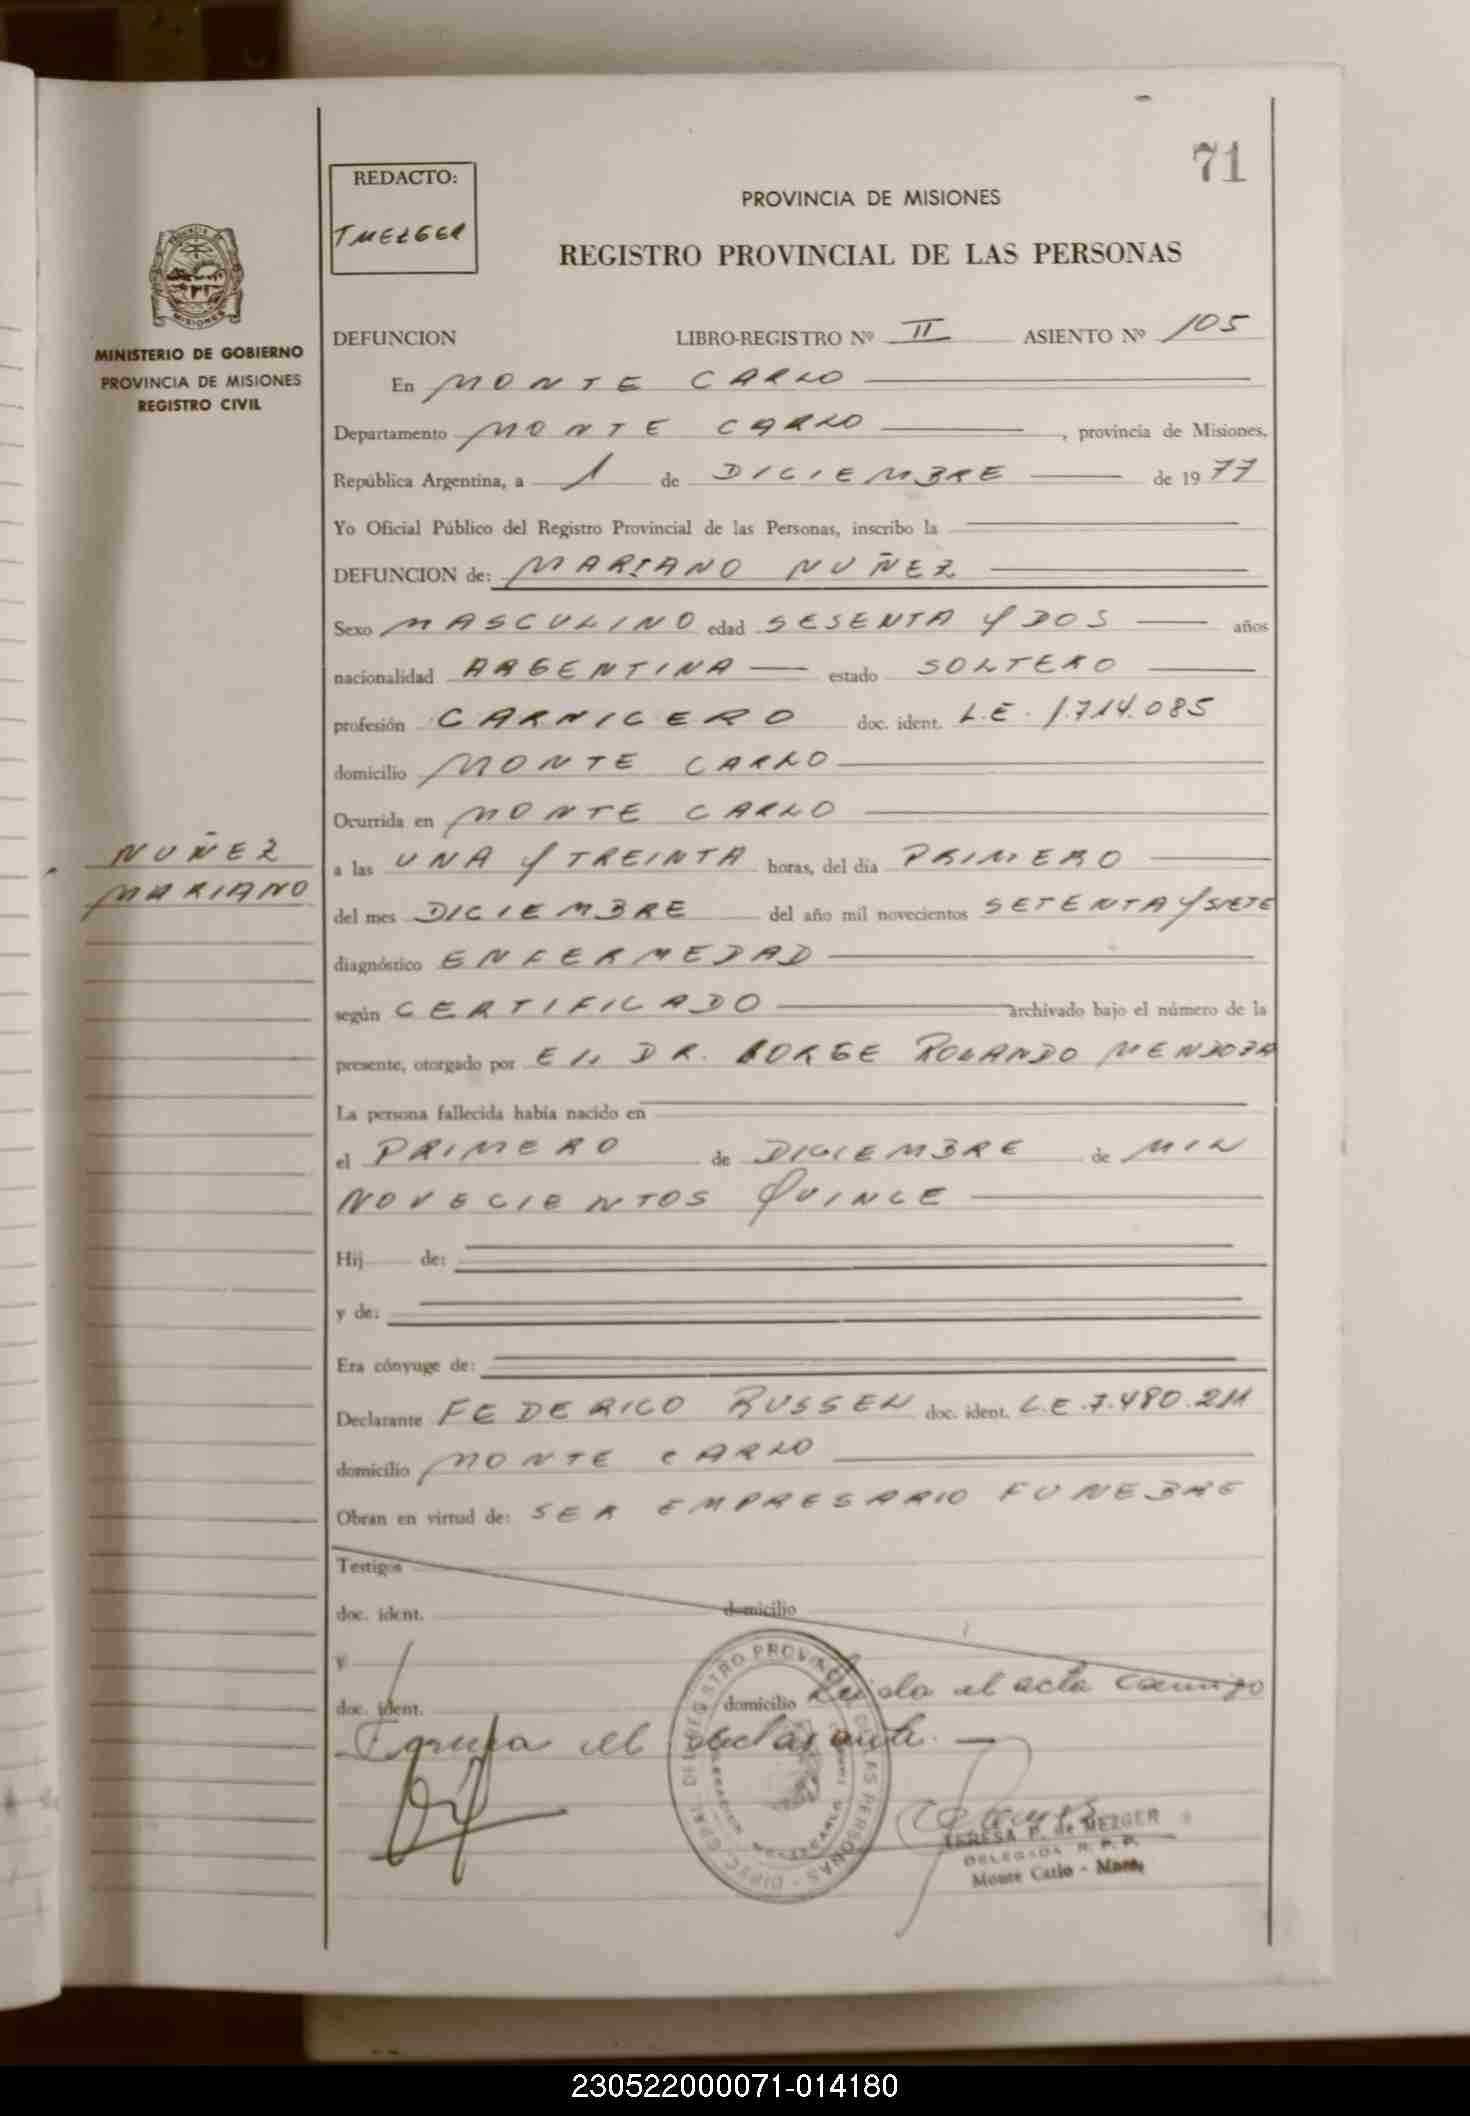 71
REDACTO:
TMEZGER
PROVINCIA DE MISIONES
REGISTRO PROVINCIAL DE LAS PERSONAS
MISIONES
MINISTERIO DE GOBIERNO
PROVINCIA DE MISIONES
REGISTRO CIVIL
DEFUNCION LIBRO-REGISTRO Nº II ASIENTO Nº 105
En MONTE CARLO
Departamento MONTE CARLO, provincia de Misiones,
República Argentina, a 1 de DICIEMBRE de 1977
Yo Oficial Público del Registro Provincial de las Personas, inscribo la
DEFUNCION de: MARIANO NUÑEZ
Sexo MASCULINO edad SESENTA Y DOS años
nacionalidad ARGENTINA estado SOLTERO
profesión CARNICERO doc. ident. L.E. 1.714.085
domicilio MONTE CARLO
Ocurrida en MONTE CARLO
NUÑEZ
MARIANO
a las UNA Y TREINTA horas, del día PRIMERO
del mes DICIEMBRE del año mil novecientos SETENTA Y SIETE
diagnóstico ENFERMEDAD
según CERTIFICADO archivado bajo el número de la
presente, otorgado por EL DR. JORGE ROLANDO MENDOZA
La persona fallecida había nacido en
el PRIMERO de DICIEMBRE de MIL
NOVECIENTOS QUINCE
Hij de:
y de:
Era cónyuge de:
Declarante FEDERICO RUSSEL doc. ident. L.E. 7.480.211
domicilio MONTE CARLO
Obran en virtud de: SER EMPRESARIO FUNEBRE
Testigos
doc. ident. domicilio
y
doc. ident. domicilio Leida el acta conmigo
firma el declarante.
DIREC. GRAL. DEL REGISTRO PROVINCIAL DE LAS PERSONAS
DELEGACION MONTECARLO
TERESA P. de MEZGER
DELEGADA R. P. P.
Monte Carlo - Mnes.
230522000071-014180